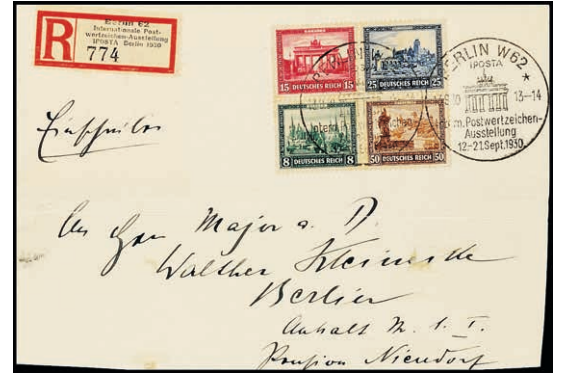 Berlin 62
Internationale Post-
wertzeichen-Ausstellung
IPOSTA Berlin 1930
R
774
15 DEUTSCHES REICH 15
25 DEUTSCHES REICH 25
8 DEUTSCHES REICH 8
50 DEUTSCHES REICH 50
BERLIN W62
IPOSTA
13-14
Postwertzeichen-
Ausstellung
12.-21.Sept.1930
Einschreiben
An Herrn Major a. D.
Walther
Berlin
Anhalt
Pension Niendorf